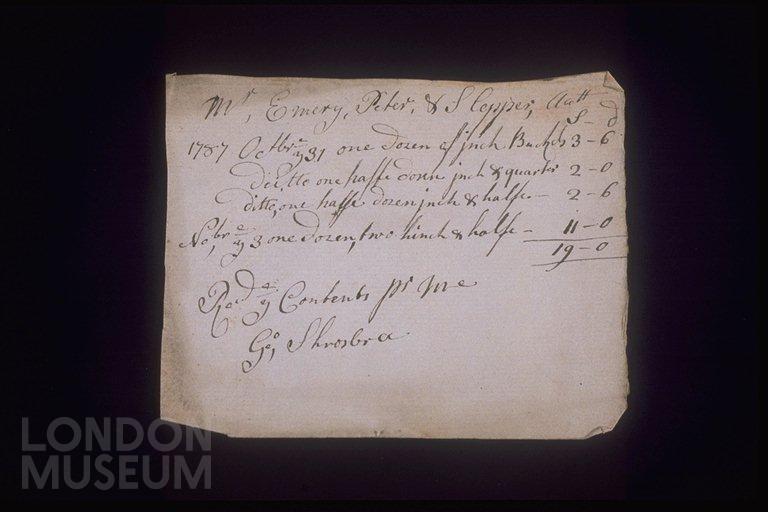 Mr, Emery, Peter, & Slopper, Acctt
S - d
1787 Octbr ye 31 one Dozen of inch Buckels 3 - 6
Deitto one haffe dozn inch & quarter 2 - 0
ditto, one haffe dozen inch & halfe - 2 - 6
Nobr ye 3 one Dozen, two hinch & halfe - 11 - 0
19 - 0
Recd ye Contents pr me
Geo, Shrosbra
LONDON
MUSEUM